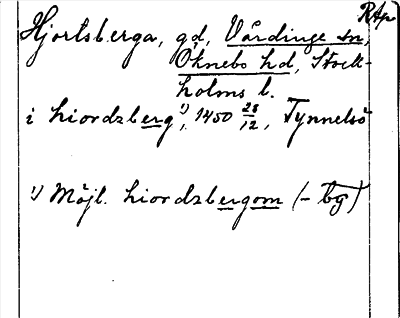 RAp
Hjortsberga, gd, Vårdinge sn,
Öknebo hd, Stock-
holms l.
i hiordzberg¹⁾, 1450 28/12, Tynnelsö
¹⁾ Möjl. hiordzbergom (- by)